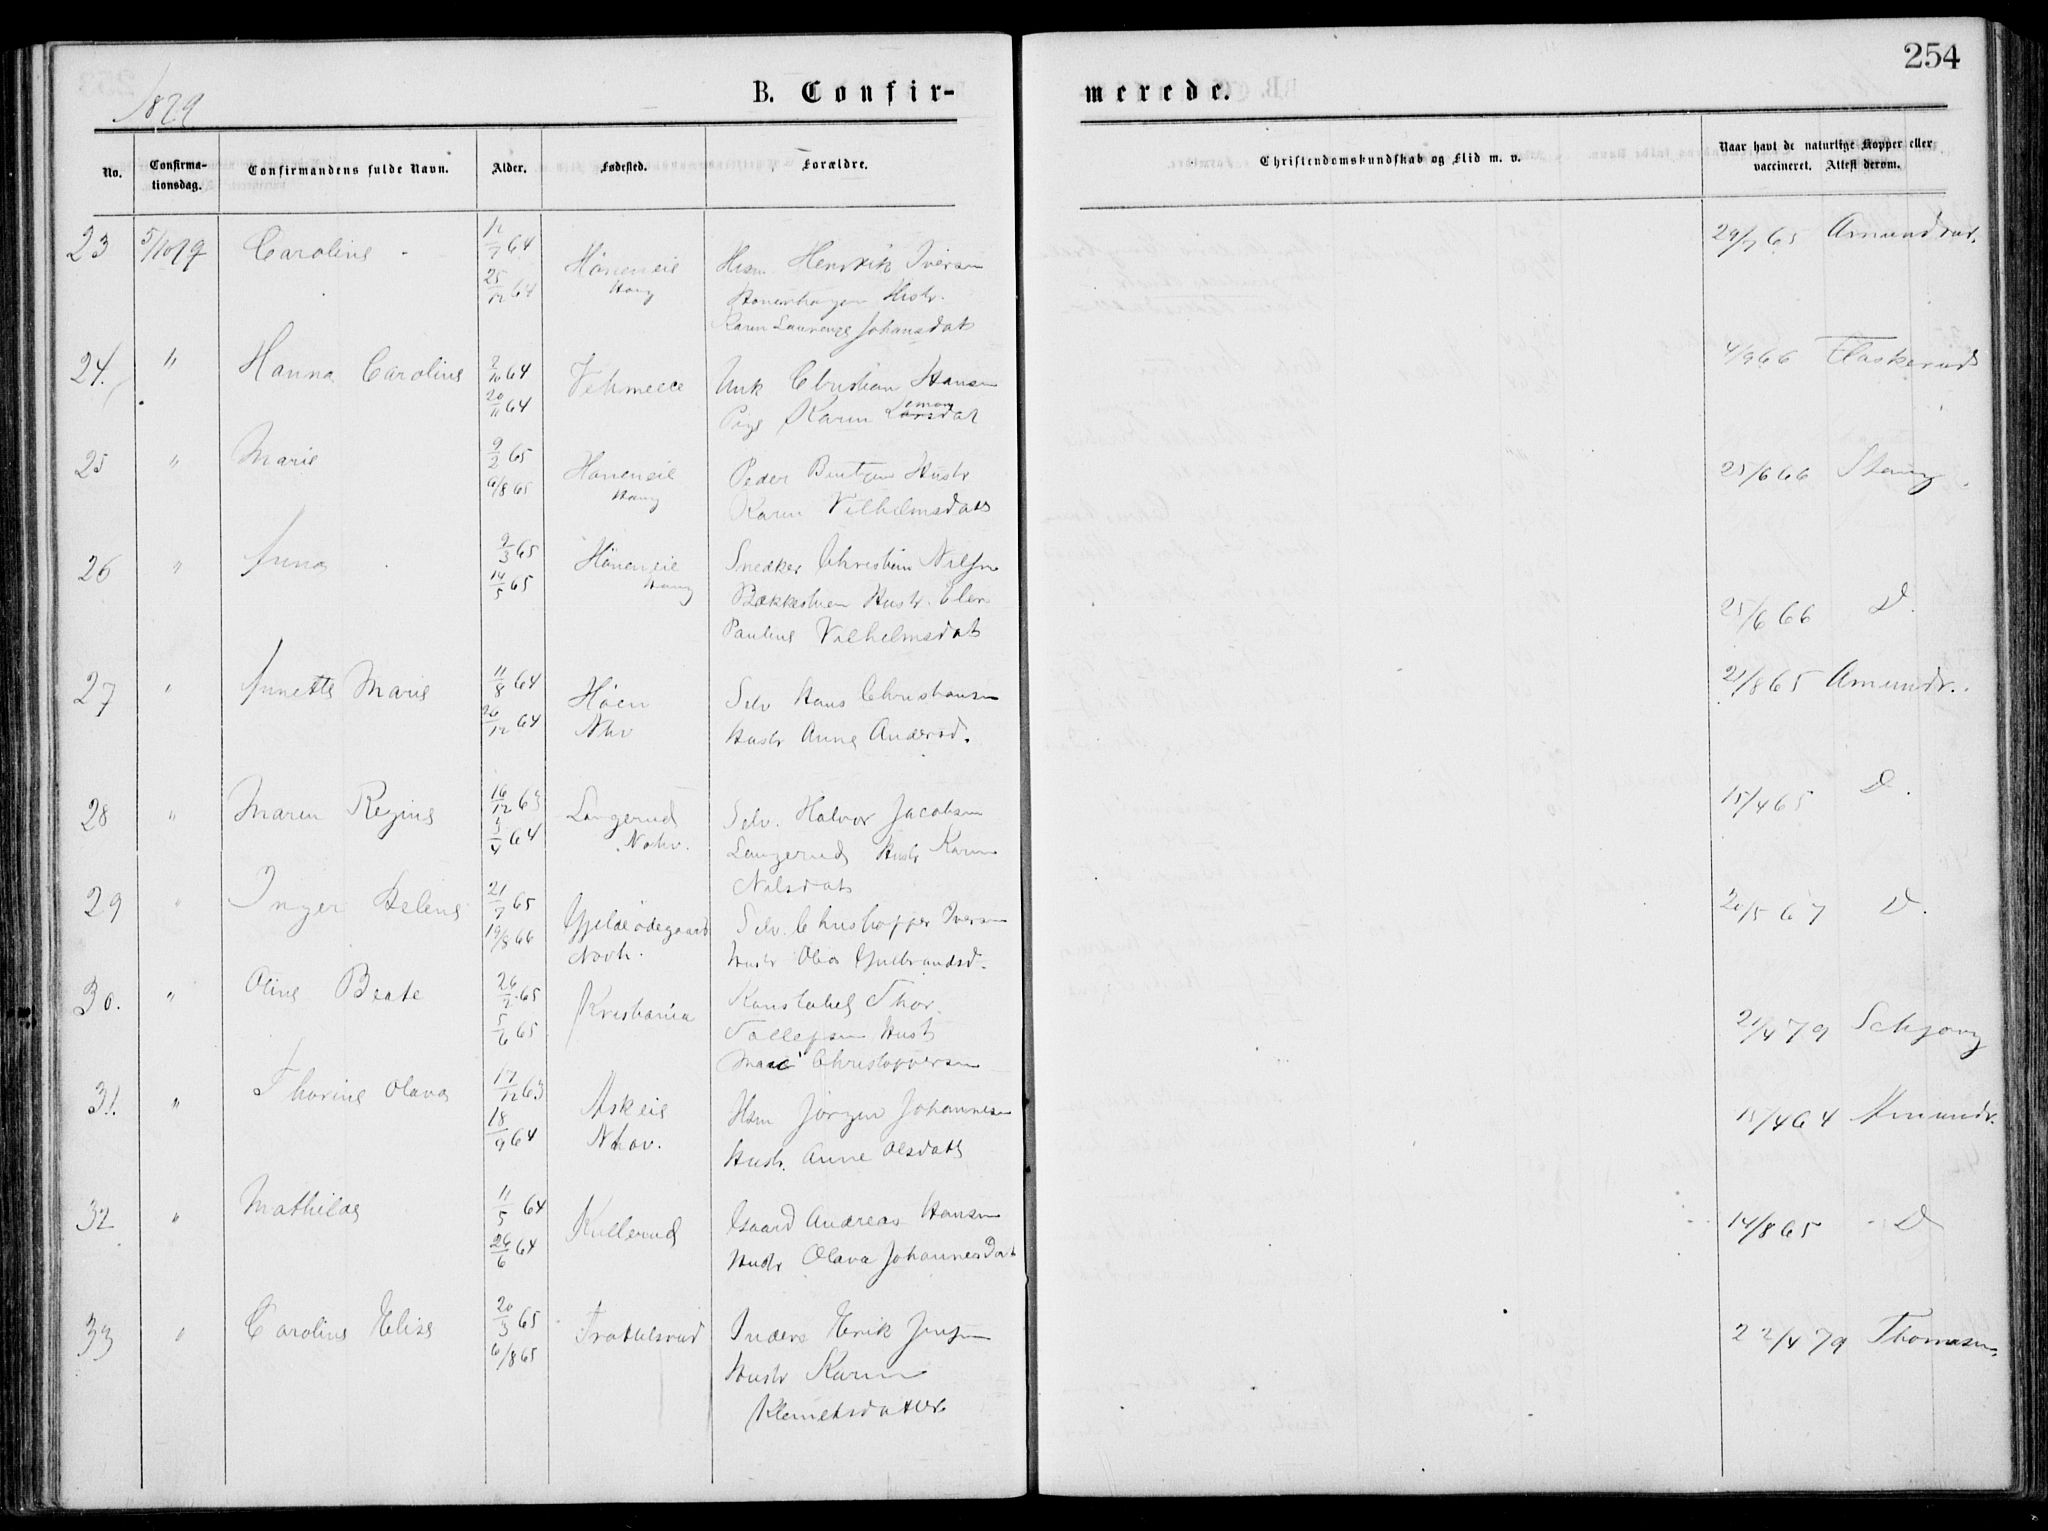 254
1879
B. Confir-
merede.
No.
Confirma-
tionsdag.
Confirmandens fulde Navn.
Alder.
Fødested.
Forældre.
Christendomskundskab og Flid m. v.
Naar havt de naturlige Kopper eller
vaccineret. Attest derom.
23 5/10 79 Caroline 12/7 64 29/7 65 Amundrud.
25/12 64 Høneneie Hsm. Henrik Iversen
Haug Hustr.
Karen Laurenze Johansdat
24. " Hanna Caroline 2/10 64 4/9 66 Flaskerud
20/11 64 Vehmeee Unk Christian Hansen
Pige Karen Larsdat
25 " Marie 9/2 65 25/6 66 Haug
6/8 65 Høneneie Peder Hustr
Haug Karen Vilhelmsdat
26 " Anna 9/3 65
14/5 65 Høneneie Snedker Christian Nilsen
Haug Bækkestuen Hustr. Elen 25/6 66 D.
Pauline Vilhelmsdat
27 " Annette Marie 11/8 64 21/8 65 Amundr.
26/12 64 Høen Selv Hans Christiansen
Nhv Hustr Anne Andersd.
28 " Maren Regine 16/12 63 15/4 65 D.
3/4 64 Langerud Selv. Halvor Jacobsen
Nohv. Langerud Hustr Karen
Nilsdat
29 " Inger Helene 21/7 65 20/5 67 D.
19/8 66 Gjeldeødegaard Selv. Christopher Iversen
Norh. Hustr Olia Gulbrandsd.
30. " Oline Beate 26/2 65 Kristiania Konstabel Thor
5/6 65 Tollefsen Hust 21/4 79 Schjong
Christophersen
31. " Thorine Olava 17/12 63 15/4 64 Amundr.
18/9 64 Askeie Hsm Jørgen Johannesen
Nhov. Hustr. Anne Olsdatt
32 " Mathilde 11/5 64 14/8 65 D
26/6 64 Kullerud Gaard Andreas Hansen
Hustr Olava Johannesdat
33 " Caroline Elise 20/3 65 22/4 79 Thomasen.
6/8 65 Trøttelsrud Inders Erik Jensen
Hustr Karen
Klemetsdatter